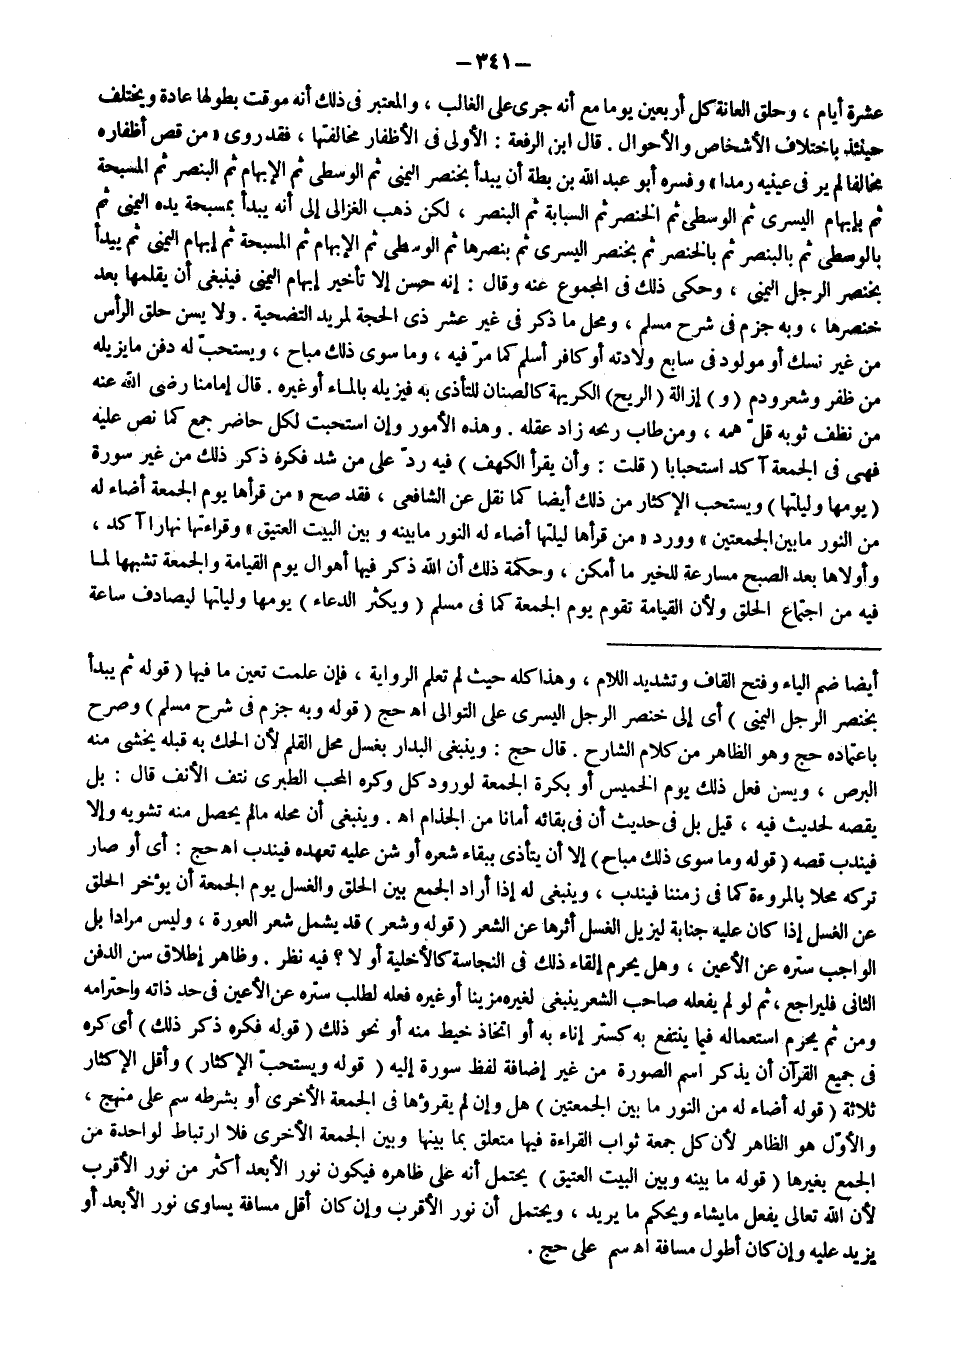 – ٣٤١ –
عشرة أيام ، وحلق العانة كل أربعين يوما مع أنه جرى على الغالب ، والمعتبر فى ذلك أنه موقت بطولها عادة ويختلف
حينئذ باختلاف الأشخاص والأحوال . قال ابن الرفعة : الأولى فى الأظفار مخالفتها ، فقد روى « من قص أظفاره
مخالفا لم ير فى عينيه رمدا » وفسره أبو عبد الله بن بطة أن يبدأ بخنصر اليمنى ثم الوسطى ثم الإبهام ثم البنصر ثم المسبحة
ثم بإبهام اليسرى ثم الوسطى ثم الخنصر ثم السبابة ثم البنصر ، لكن ذهب الغزالى إلى أنه يبدأ بمسبحة يده اليمنى ثم
بالوسطى ثم بالبنصر ثم بالخنصر ثم بخنصر اليسرى ثم بنصرها ثم الوسطى ثم الإبهام ثم المسبحة ثم إبهام اليمنى ثم يبدأ
بخنصر الرجل اليمنى ، وحكى ذلك فى المجموع عنه وقال : إنه حسن إلا تأخير إبهام اليمنى فينبغى أن يقلمها بعد
خنصرها ، وبه جزم فى شرح مسلم ، ومحل ما ذكر فى غير عشر ذى الحجة لمريد التضحية . ولا يسن حلق الرأس
من غير نسك أو مولود فى سابع ولادته أو كافر أسلم كما مرّ فيه ، وما سوى ذلك مباح ، ويستحبّ له دفن مايزيله
من ظفر وشعر ودم ( و ) إزالة ( الريح ) الكريهة كالصنان للتأذى به فيزيله بالماء أو غيره . قال إمامنا رضى الله عنه
من نظف ثوبه قلّ همه ، ومن طاب ريحه زاد عقله . وهذه الأمور وإن استحبت لكل حاضر جمع كما نص عليه
فهى فى الجمعة آكد استحبابا ( قلت : وأن يقرأ الكهف ) فيه ردّ على من شد فكره ذكر ذلك من غير سورة
( يومها وليلتها ) ويستحب الإكثار من ذلك أيضا كما نقل عن الشافعى ، فقد صح « من قرأها يوم الجمعة أضاء له
من النور مابين الجمعتين » وورد « من قرأها ليلتها أضاء له النور مابينه و بين البيت العتيق » وقراءتها نهارا آكد ،
وأولاها بعد الصبح مسارعة للخير ما أمكن ، وحكمة ذلك أن الله ذكر فيها أهوال يوم القيامة والجمعة تشبهها لما
فيه من اجتماع الخلق ولأن القيامة تقوم يوم الجمعة كما فى مسلم ( ويكثر الدعاء ) يومها وليلتها ليصادف ساعة
أيضا ضم الياء وفتح القاف وتشديد اللام ، وهذا كله حيث لم تعلم الرواية ، فإن علمت تعين ما فيها ( قوله ثم يبدأ
بخنصر الرجل اليمنى ) أى إلى خنصر الرجل اليسرى على التوالى اه حج ( قوله وبه جزم فى شرح مسلم ) وصرح
باعتماده حج وهو الظاهر من كلام الشارح . قال حج : وينبغى البدار بغسل محل القلم لأن الحك به قبله يخشى منه
البرص ، ويسن فعل ذلك يوم الخميس أو بكرة الجمعة لورود كل وكره المحب الطبرى نتف الأنف قال : بل
يقصه لحديث فيه ، قيل بل فى حديث أن فى بقائه أمانا من الجذام اه . وينبغى أن محله مالم يحصل منه تشويه وإلا
فيندب قصه ( قوله وما سوى ذلك مباح ) إلا أن يتأذى ببقاء شعره أو شن عليه تعهده فيندب اه حج : أى أو صار
تركه مخلا بالمروءة كما فى زمننا فيندب ، وينبغى له إذا أراد الجمع بين الحلق والغسل يوم الجمعة أن يؤخر الحلق
عن الغسل إذا كان عليه جنابة ليزيل الغسل أثرها عن الشعر ( قوله وشعر ) قد يشمل شعر العورة ، وليس مرادا بل
الواجب ستره عن الأعين ، وهل يحرم إلقاء ذلك فى النجاسة كالأخلية أو لا ؟ فيه نظر . وظاهر إطلاق سن الدفن
الثانى فليراجع ، ثم لو لم يفعله صاحب الشعر ينبغى لغيره مزينا أو غيره فعله لطلب ستره عن الأعين فى حد ذاته واحترامه
ومن ثم يحرم استعماله فيما ينتفع به كستر إناء به أو اتخاذ خيط منه أو نحو ذلك ( قوله فكره ذكر ذلك ) أى كره
فى جميع القرآن أن يذكر اسم الصورة من غير إضافة لفظ سورة إليه ( قوله ويستحبّ الإكثار ) وأقل الإكثار
ثلاثة ( قوله أضاء له من النور ما بين الجمعتين ) هل وإن لم يقرؤها فى الجمعة الأخرى أو بشرطه سم على منهج ،
والأوّل هو الظاهر لأن كل جمعة ثواب القراءة فيها متعلق بما بينها وبين الجمعة الأخرى فلا ارتباط لواحدة من
الجمع بغيرها ( قوله ما بينه وبين البيت العتيق ) يحتمل أنه على ظاهره فيكون نور الأبعد أكثر من نور الأقرب
لأن الله تعالى يفعل مايشاء ويحكم ما يريد ، ويحتمل أن نور الأقرب وإن كان أقل مسافة يساوى نور الأبعد أو
يزيد عليه وإن كان أطول مسافة اه سم على حج .